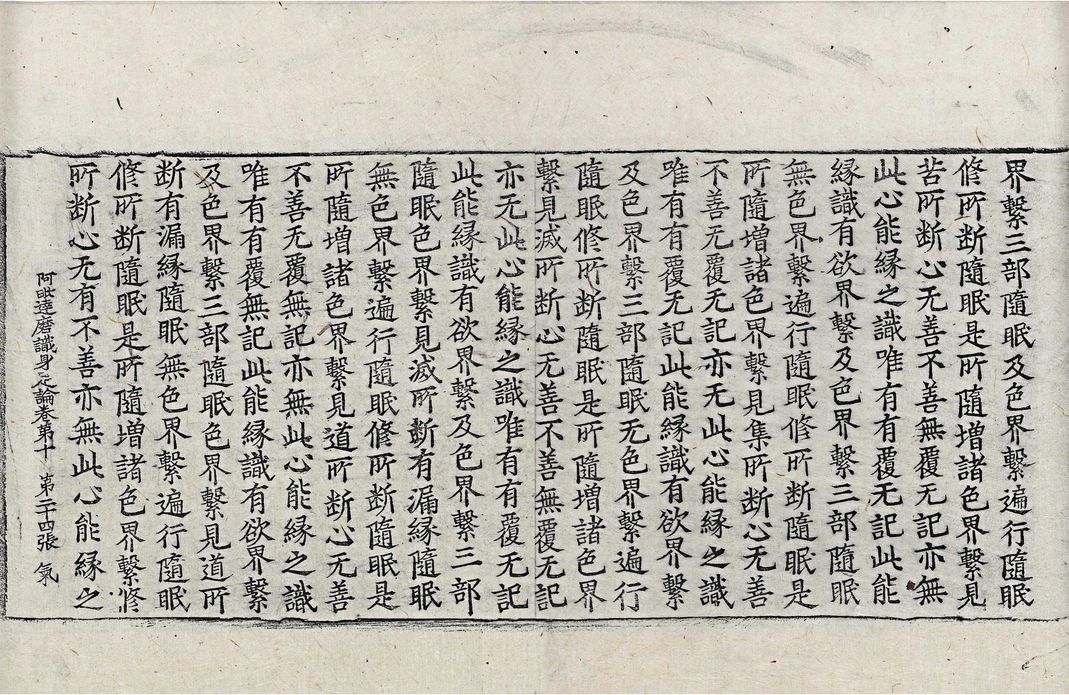 界繫三部隨眠及色界繫遍行隨眠
修所断隨眠是所隨増諸色界繫見
苦所断心无善不善無覆无記亦無
此心能縁之識唯有有覆无記此能
縁識有欲界繫及色界繫三部隨眠
無色界繫遍行隨眠修所断隨眠是
所隨増諸色界繫見集所断心无善
不善无覆无記亦无此心能縁之識
唯有有覆无記此能縁識有欲界繫
及色界繫三部隨眠无色界繫遍行
隨眠修所断隨眠是所隨増諸色界
繫見滅所断心无善不善無覆无記
亦无此心能縁之識唯有有覆无記
此能縁識有欲界繫及色界繫三部
隨眠色界繫見滅所断有漏縁隨眠
無色界繫遍行隨眠修所断隨眠是
所隨増諸色界繫見道所断心无善
不善无覆無記亦無此心能縁之識
唯有有覆無記此能縁識有欲界繫
及色界繫三部隨眠色界繫見道所
断有漏縁隨眠無色界繫遍行隨眠
修所断隨眠是所隨増諸色界繫修
所断心无有不善亦無此心能縁之
阿毗達磨識身足論卷第十 第二十四張 氣